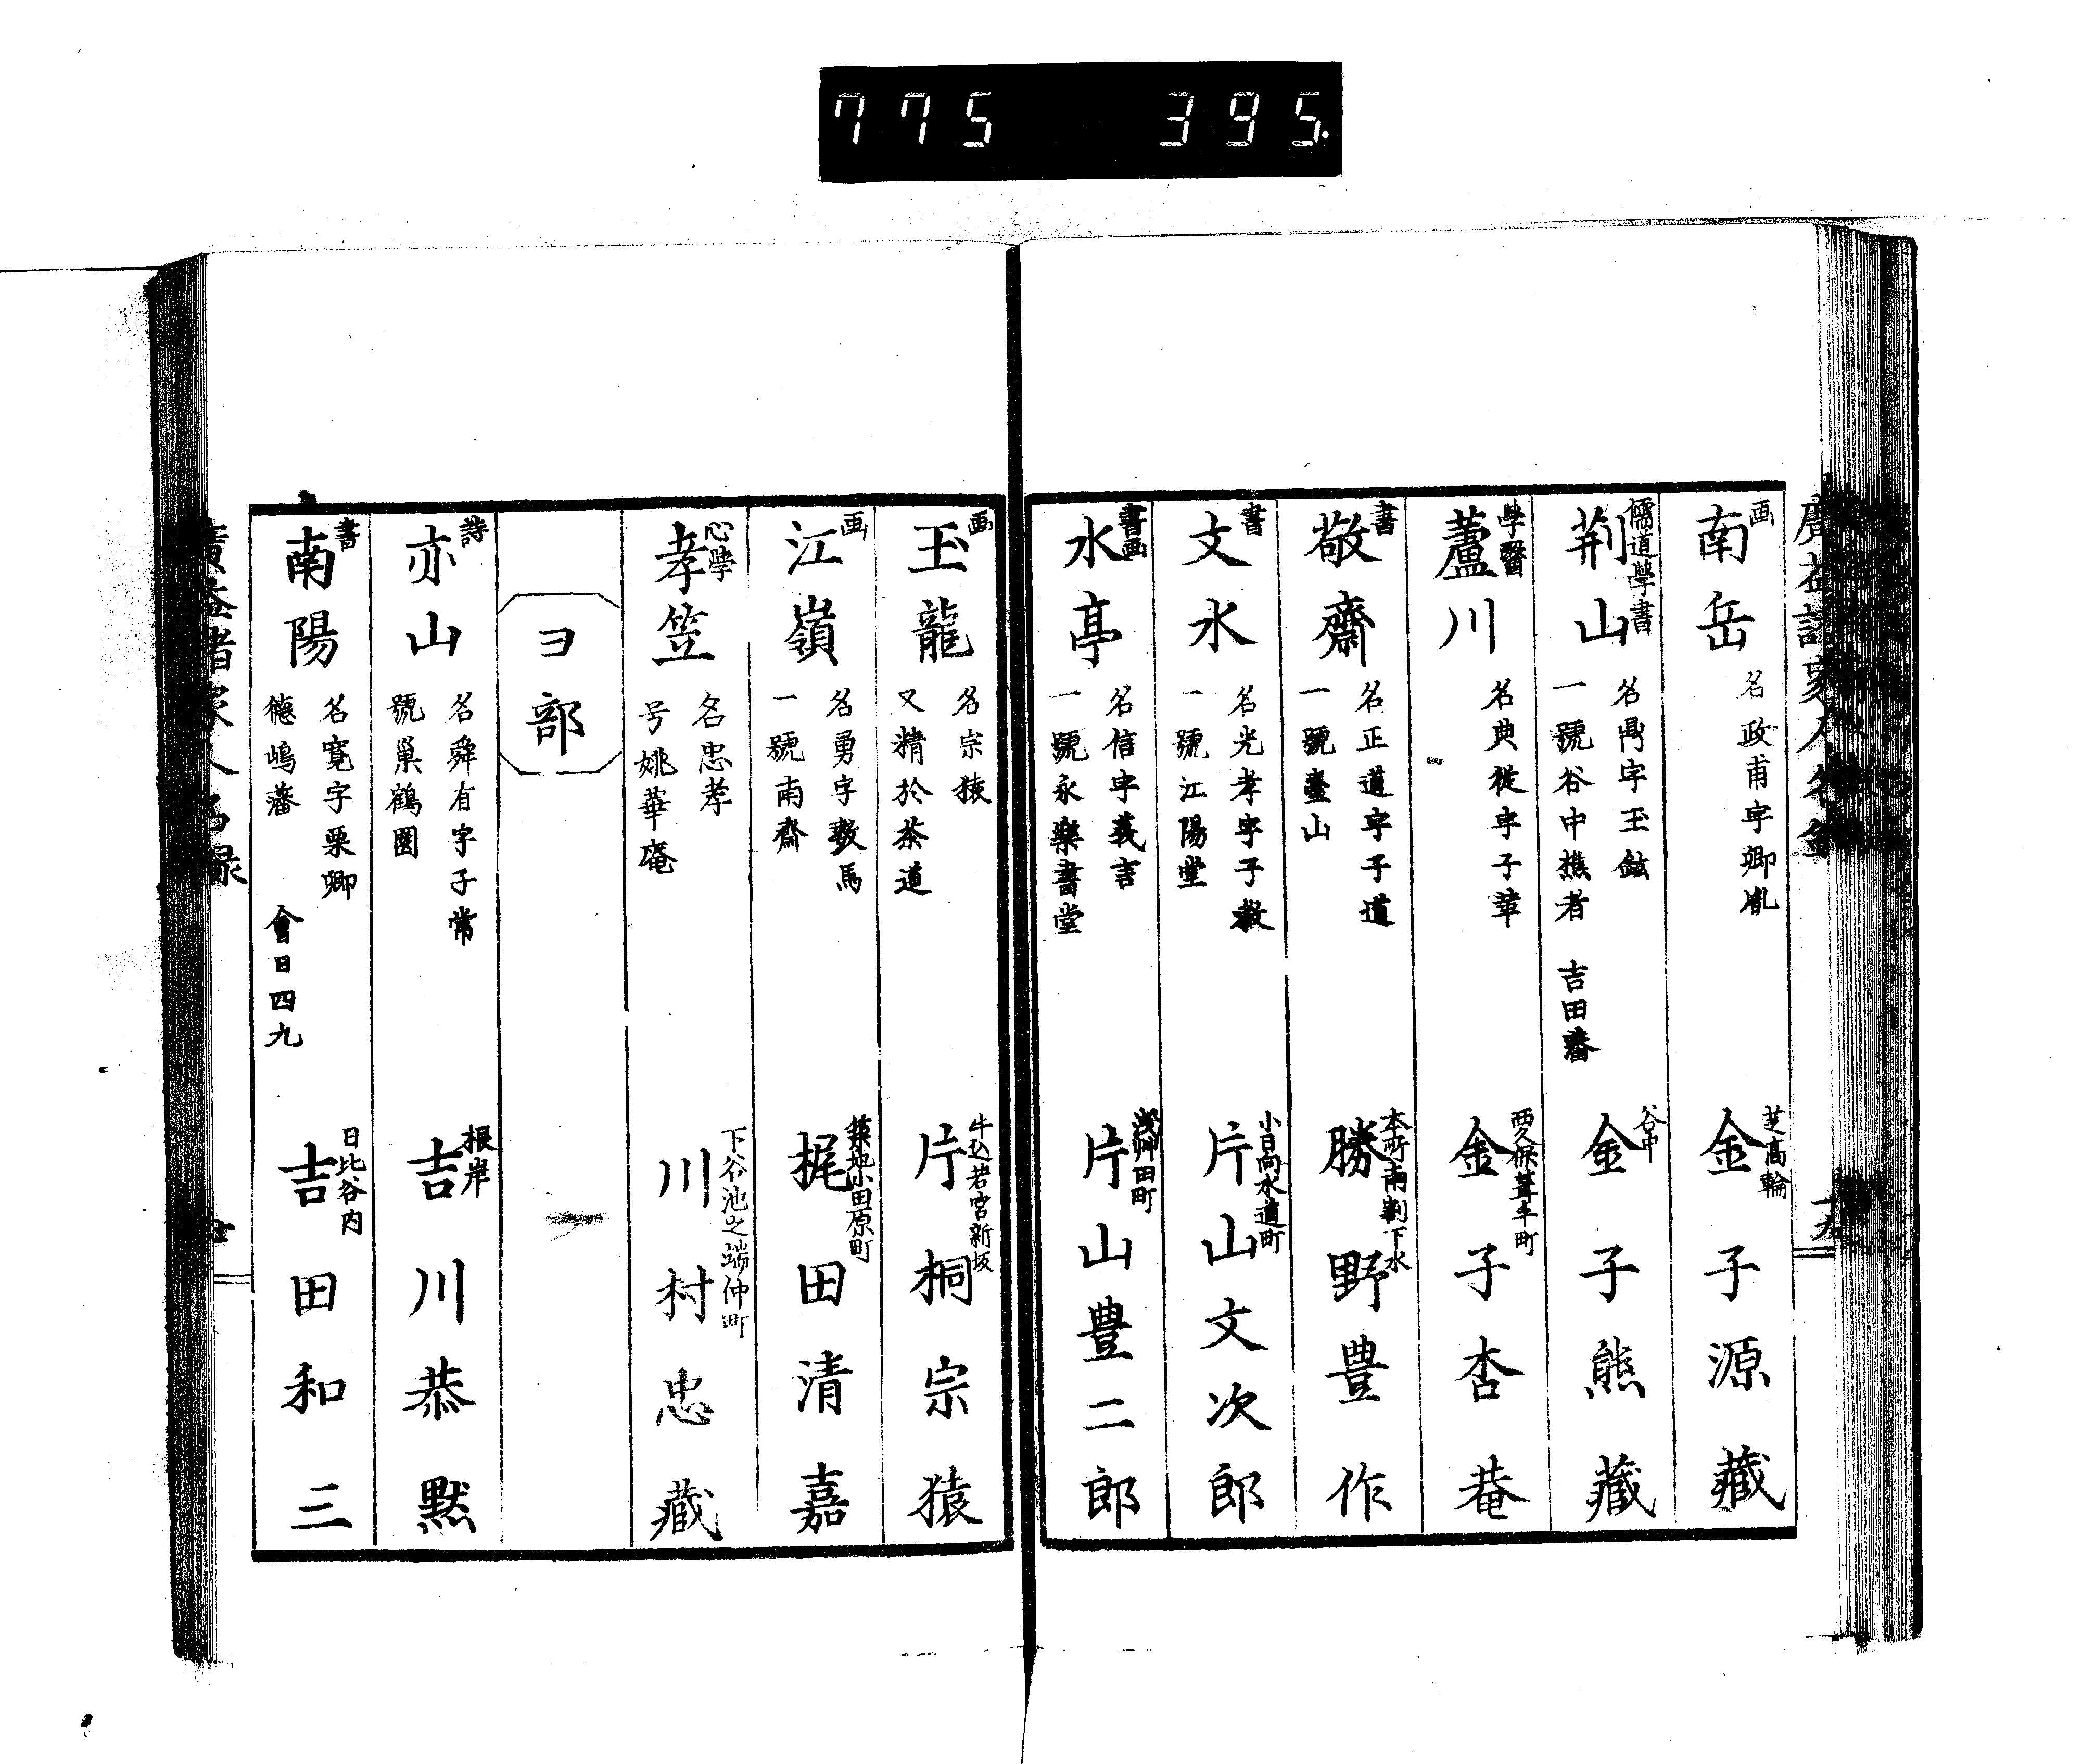 775 395.
画
南岳
名政甫字卿胤
芝高輪
金子源藏
儒道學書
荊山
名鼎字玉鉉
一號谷中樵者 吉田藩
谷中
金子熊藏
學醫
蘆川
名典從字子韋
西久保葺手町
金子杏菴
書
敬齋
名正道字子道
一號臺山
本所南割下水
勝野豊作
書
文水
名光孝字子教
一號江陽堂
小日向水道町
片山文次郎
書画
水亭
名信字義吉
一號永樂書堂
浅艸田町
片山豊二郎
画
玉龍
名宗猿
又精於茶道
牛込若宮新坂
片桐宗猿
画
江嶺
名勇字數馬
一號南齋
築地小田原町
梶田清嘉
心學
孝笠
名忠孝
号姚華庵
下谷池之端仲町
川村忠藏
ヨ部
詩
亦山
名舜有字子常
號巢鶴園
根岸
吉川恭黙
書
南陽
名寛字栗卿
德嶋藩 會日四九
日比谷内
吉田和三